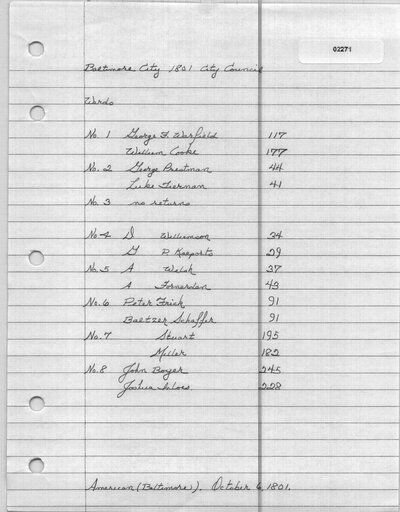 02271
Baltimore City 1801 City Council
Wards
No. 1 George F. Warfield 117
William Cooke 177
No. 2 George Prestman 44
Luke Tiernan 41
No. 3 no returns
No. 4 D Williamson 34
G R 29
No. 5 A Welsh 37
A Fonerden 43
No. 6 Peter Frick 91
Baltzer Schaffer 91
No. 7 Stuart 195
Miller 182
No. 8 John Boyer 245
Joshua 228
American (Baltimore). October 6, 1801.